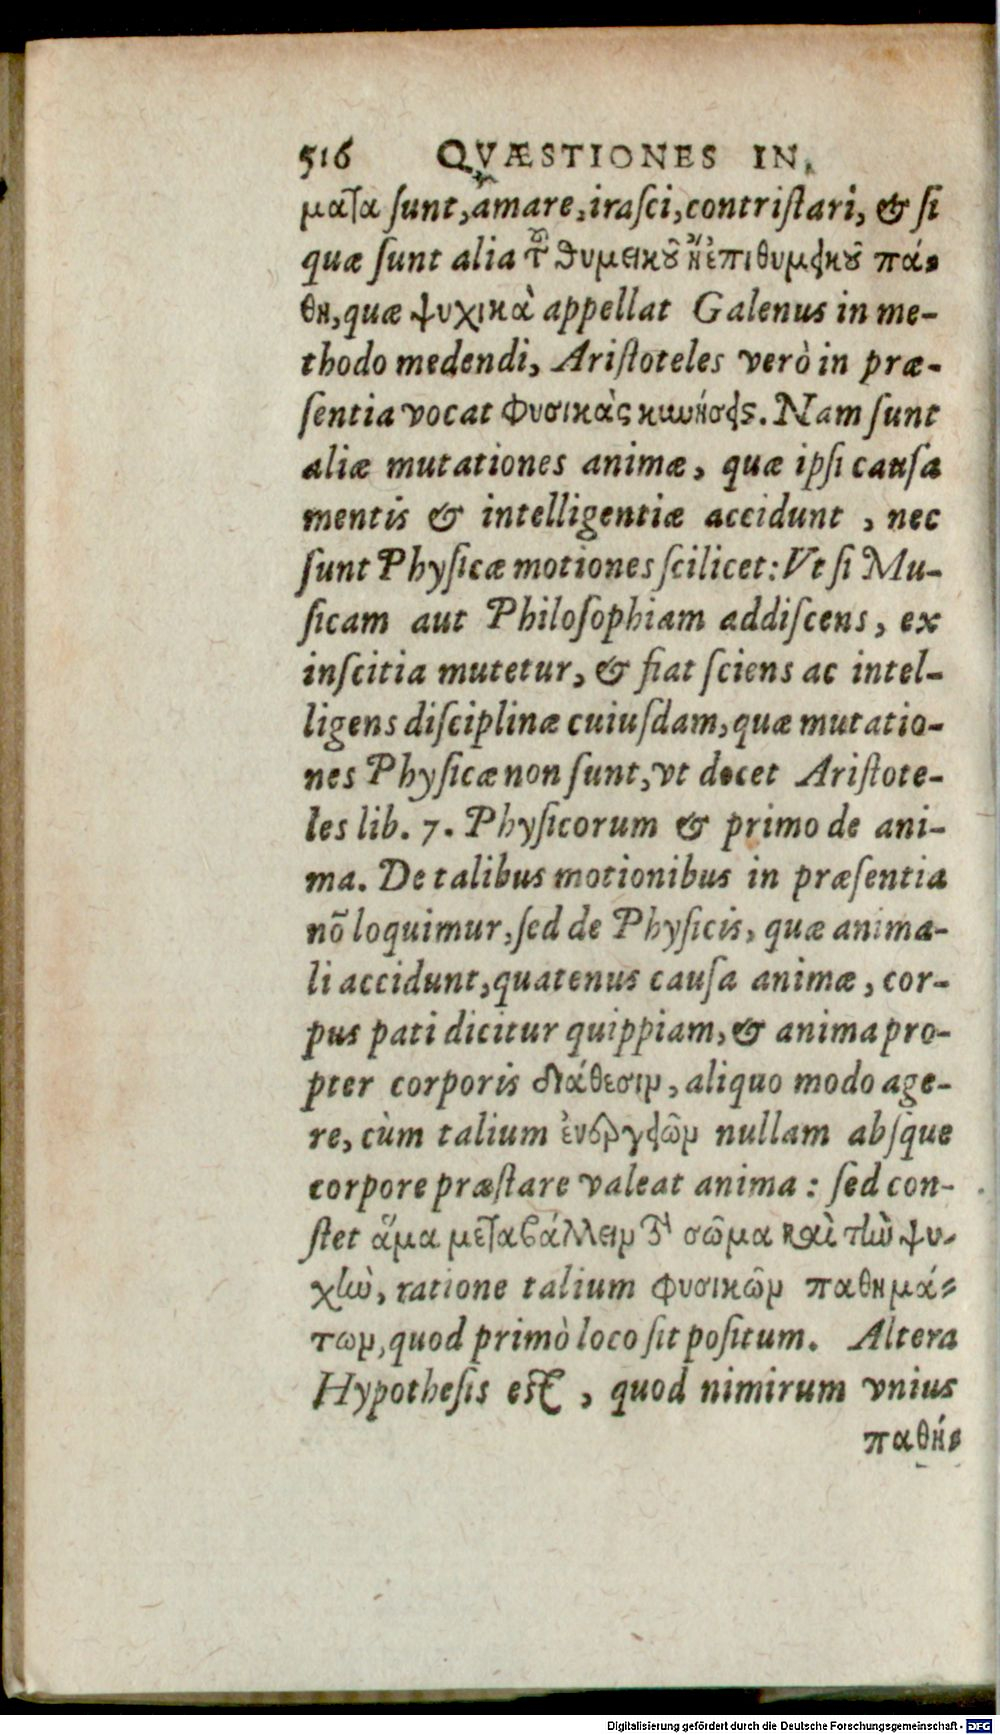 516 QVÆSTIONES IN
ματα ſunt, amare, iraſci, contriſtari, & ſi
quæ ſunt alia τȣ͂ θυμεικȣ͂ ἢ ἐπιθυμεικȣ͂ πά-
θη, quæ ψυχικὰ appellat Galenus in me-
thodo medendi, Ariſtoteles verò in præ-
ſentia vocat φυσικὰς κινήσεις. Nam ſunt
aliæ mutationes animæ, quæ ipſi cauſa
mentis & intelligentiæ accidunt, nec
ſunt Phyſicæ motiones ſcilicet: Vt ſi Mu-
ſicam aut Philoſophiam addiſcens, ex
inſcitia mutetur, & fiat ſciens ac intel-
ligens diſciplinæ cuiuſdam, quæ mutatio-
nes Phyſicæ non ſunt, vt docet Ariſtote-
les lib. 7. Phyſicorum & primo de ani-
ma. De talibus motionibus in præſentia
nō loquimur, ſed de Phyſicis, quæ anima-
li accidunt, quatenus cauſa animæ, cor-
pus pati dicitur quippiam, & anima pro-
pter corporis διάθεσιν, aliquo modo age-
re, cùm talium ἐνεργειῶν nullam abſque
corpore præſtare valeat anima: ſed con-
ſtet ἅμα μεταβάλλειν τὸ σῶμα καὶ τὴν ψυ-
χὴν, ratione talium φυσικῶν παθημά-
των, quod primò loco ſit poſitum. Altera
Hypotheſis eſt, quod nimirum vnius
παθή-
Digitalisierung gefördert durch die Deutsche Forschungsgemeinschaft - DFG